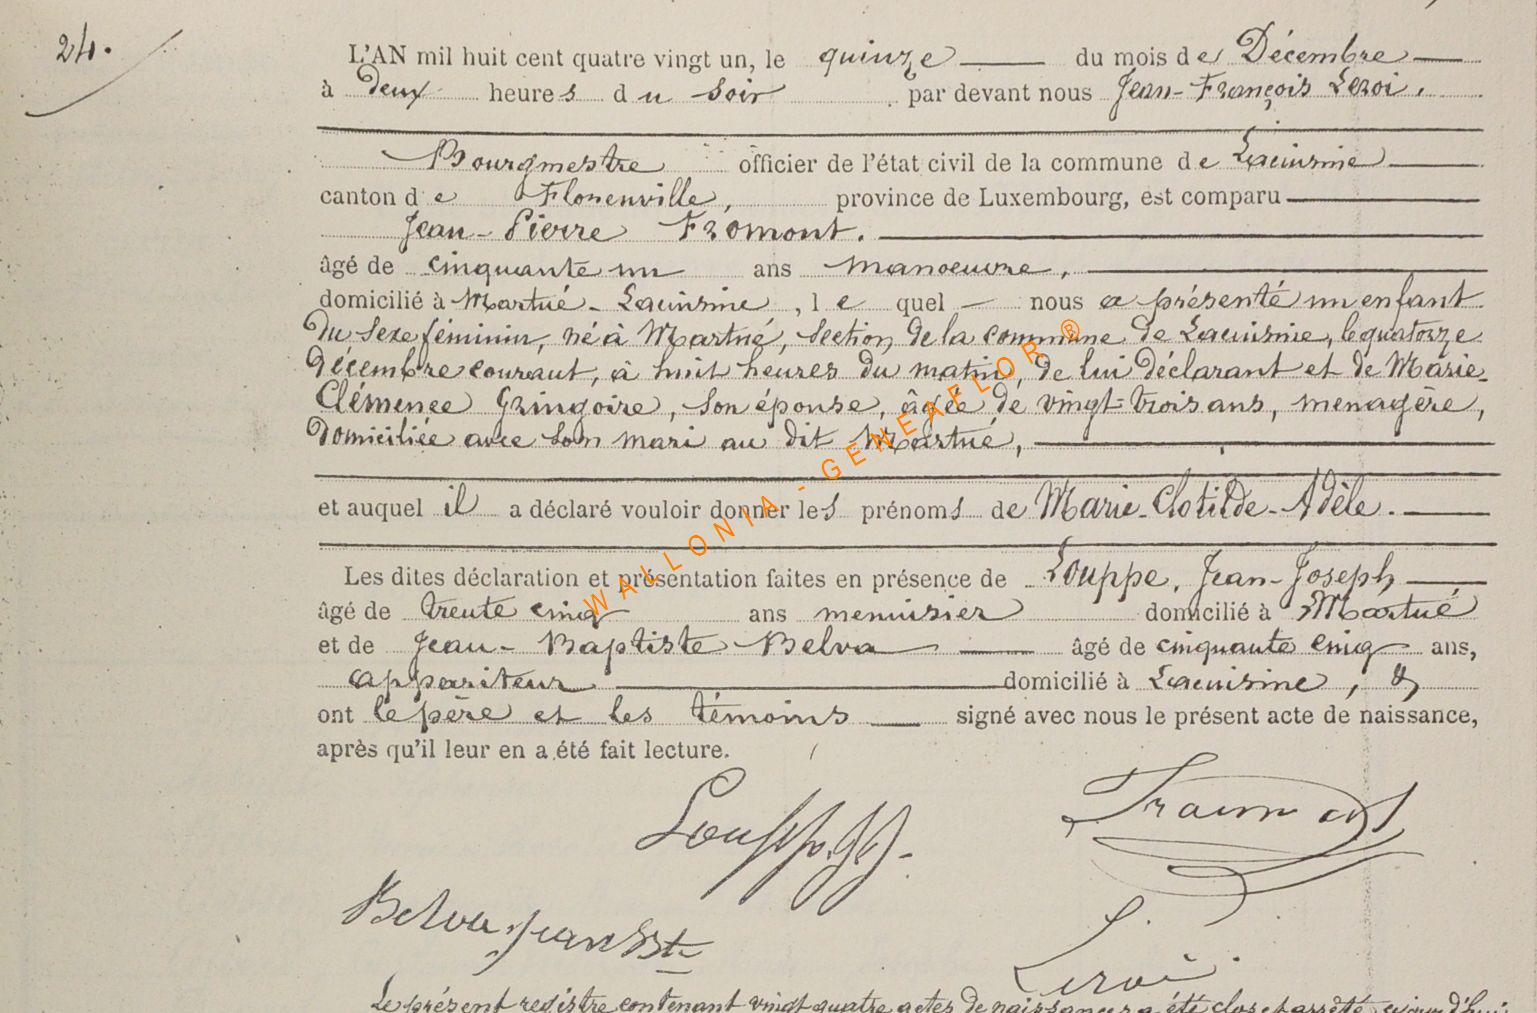 24.
L'AN mil huit cent quatre vingt un, le quinze du mois de Décembre
à deux heures du soir par devant nous Jean-François Leroi,
Bourgmestre officier de l'état civil de la commune de Lacuisine
canton de Florenville, province de Luxembourg, est comparu
Jean-Pierre Fromont.
âgé de cinquante un ans manoeuvre,
domicilié à Martué-Lacuisine, le quel nous a présenté un enfant
du sexe féminin, né à Martué, section de la commune de Lacuisine, le quatorze
décembre courant, à huit heures du matin, de lui déclarant et de Marie-
Clémence Gringoire, son épouse, âgée de vingt-trois ans, menagère,
domiciliée avec son mari au dit Martué,
et auquel il a déclaré vouloir donner les prénoms de Marie-Clotilde-Adèle.
Les dites déclaration et présentation faites en présence de Louppe, Jean-Joseph
âgé de trente cinq ans menuisier domicilié à Martué
et de Jean-Baptiste Belva âgé de cinquante cinq ans,
appariteur domicilié à Lacuisine, &
ont le père et les témoins signé avec nous le présent acte de naissance,
après qu'il leur en a été fait lecture.
WALLONIA - GENEAFLOR ®
Louppe. J.J. Fraimont
Belva. jean Bte
J. Leroi.
Le présent registre contenant vingt quatre actes de naissances a été clos et arrêté, ce jourd'hui